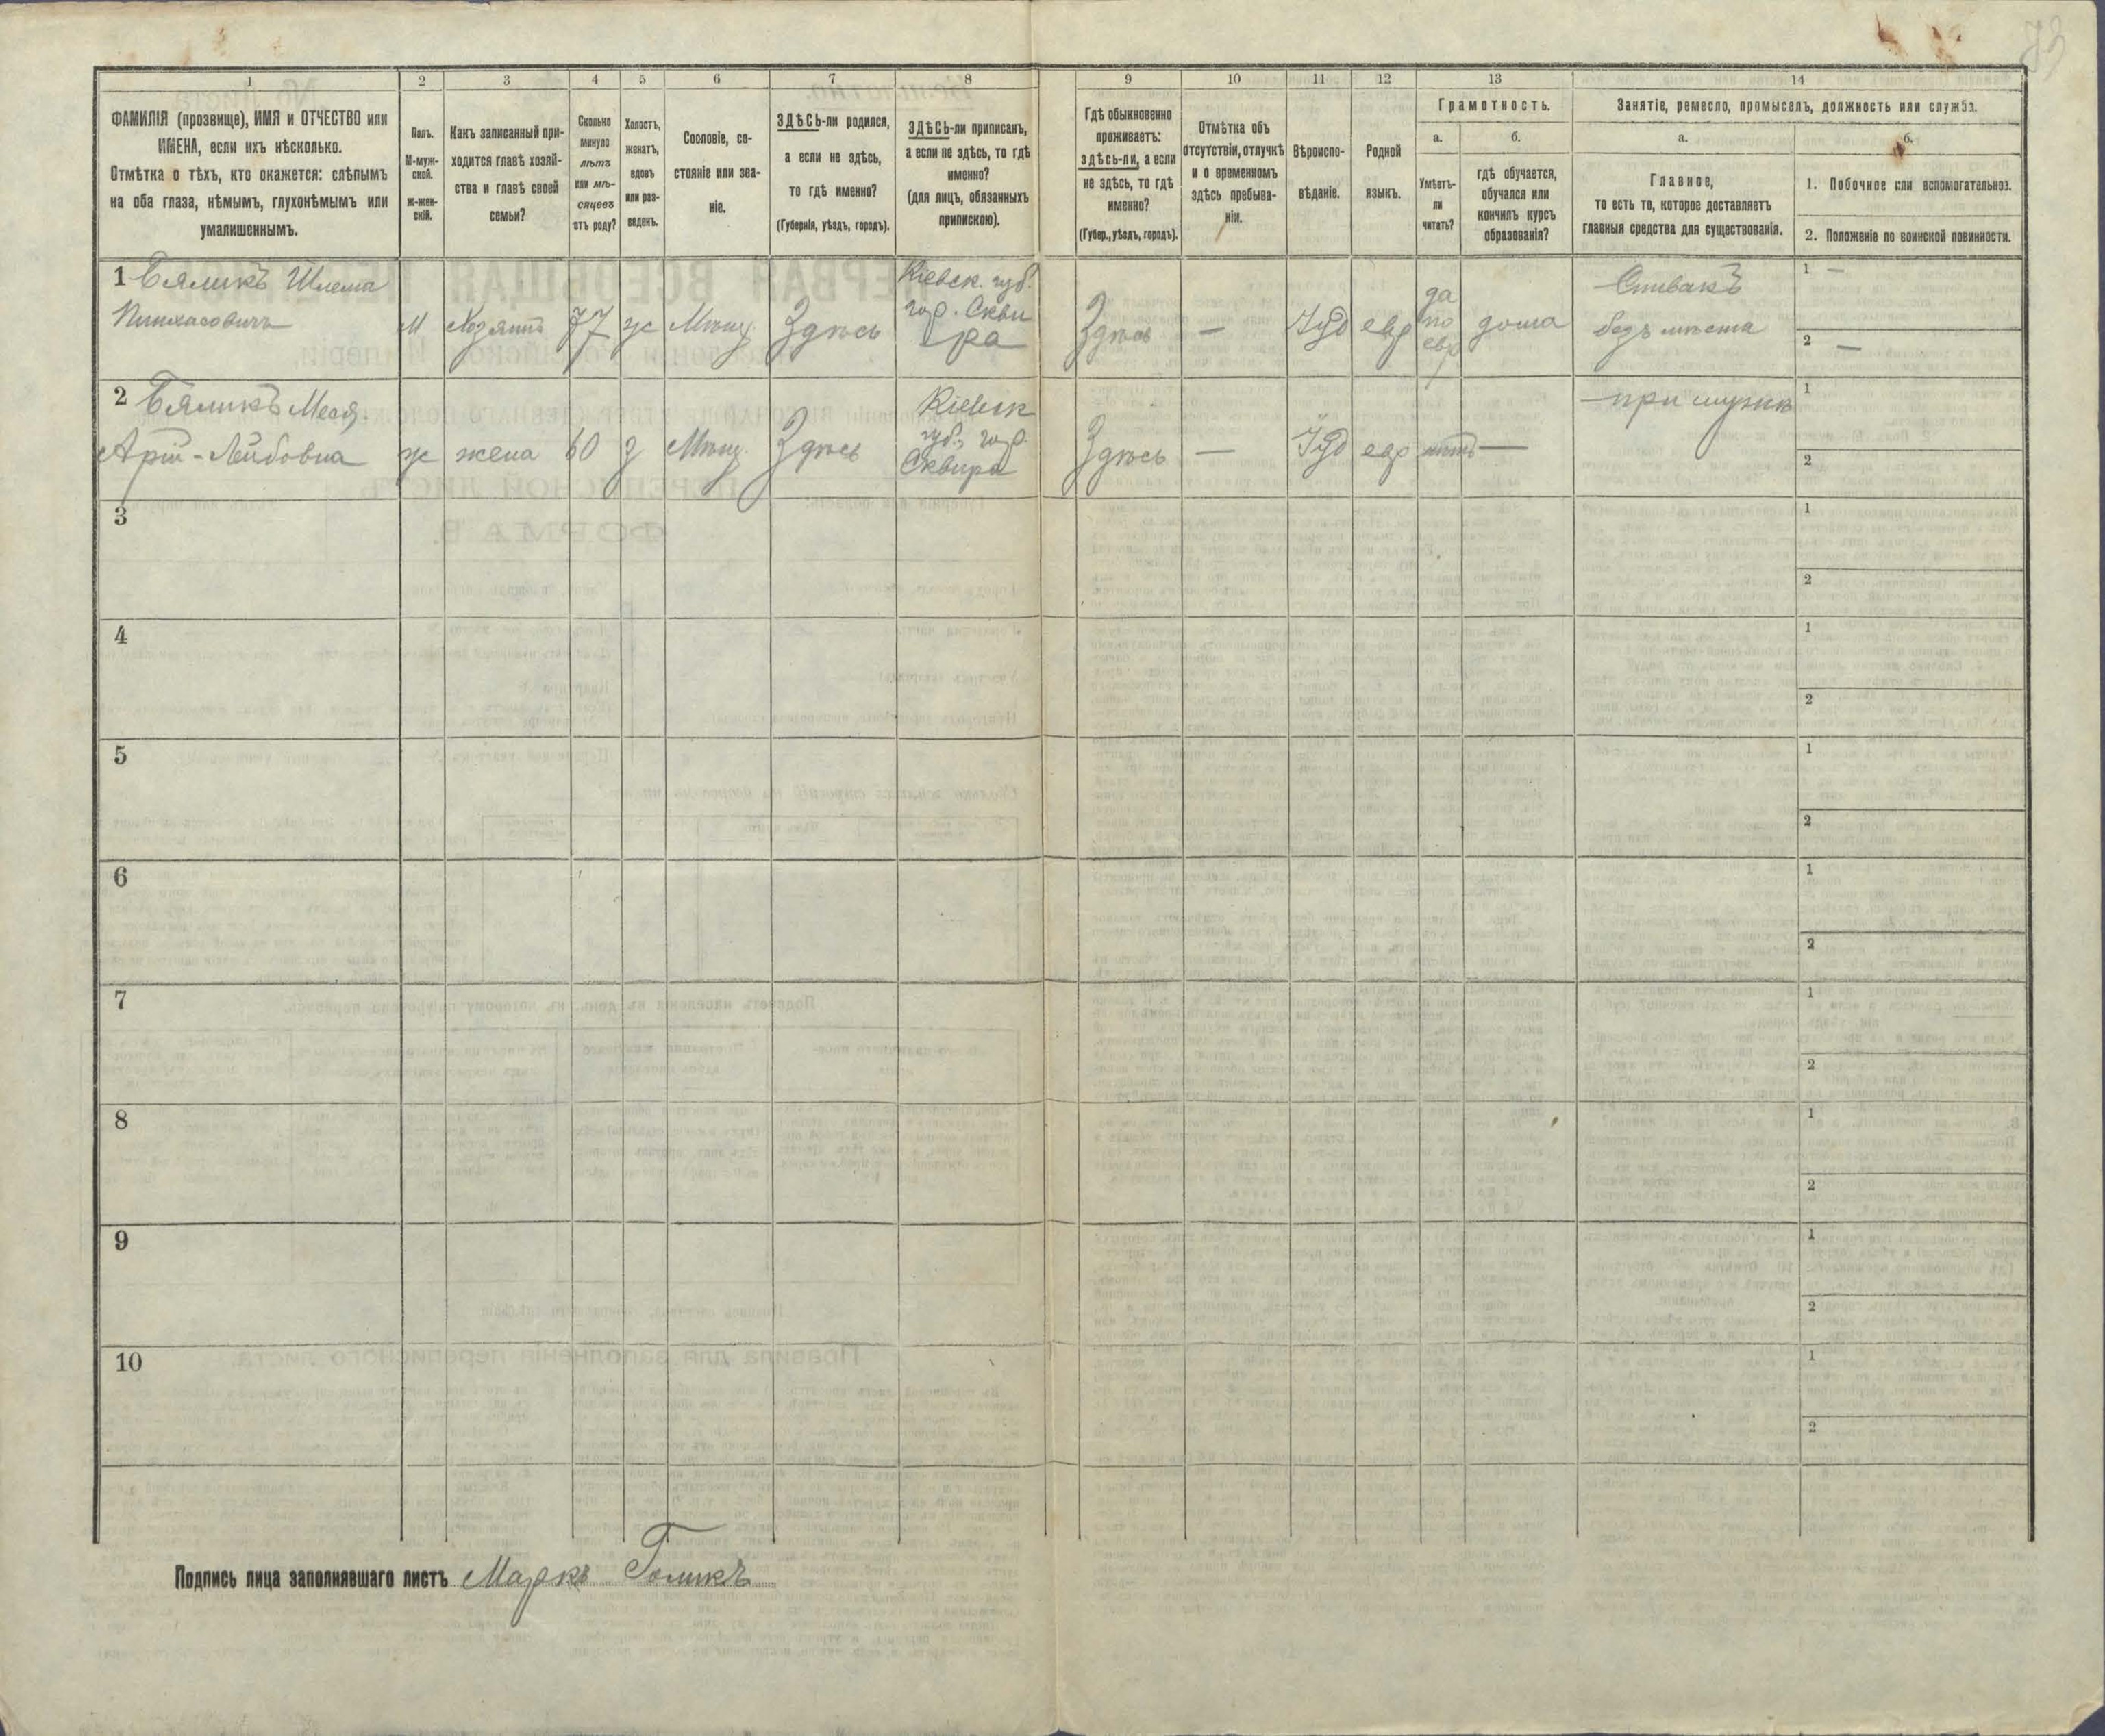 73
1
2
3
4
5
6
7
8
9
10
11
12
13
14
ФАМИЛІЯ (прозвище), ИМЯ и ОТЧЕСТВО или
ИМЕНА, если ихъ нѣсколько.
Отмѣтка о тѣхъ, кто окажется: слѣпымъ
на оба глаза, нѣмымъ, глухонѣмымъ или
умалишеннымъ.
Полъ.
М-муж-
ской.
Ж-жен-
скій.
Какъ записанный при-
ходится главѣ хозяй-
ства и главѣ своей
семьи?
Сколько
минуло
лѣтъ
или мѣ-
сяцевъ
отъ роду?
Холостъ,
женатъ,
вдовъ
или раз-
веденъ.
Сословіе, со-
стояніе или зва-
ніе.
ЗДѢСЬ-ли родился,
а если не здѣсь,
то гдѣ именно?
(Губернія, уѣздъ, городъ).
ЗДѢСЬ-ли приписанъ,
а если не здѣсь, то гдѣ
именно?
(для лицъ, обязанныхъ
припискою).
Гдѣ обыкновенно
проживаетъ:
здѣсь-ли, а если
не здѣсь, то гдѣ
именно?
(Губер., уѣздъ, городъ).
Отмѣтка объ
отсутствіи, отлучкѣ
и о временномъ
здѣсь пребыва-
ніи.
Вѣроиспо-
вѣданіе.
Родной
языкъ.
Грамотность.
а.
Умѣетъ-
ли
читать?
б.
гдѣ обучается,
обучался или
кончилъ курсъ
образованія?
Занятіе, ремесло, промыселъ, должность или служба.
а.
Главное,
то есть то, которое доставляетъ
главныя средства для существованія.
б.
1. Побочное или вспомогательное.
2. Положеніе по воинской повинности.
1 Бяликъ Шлема
Пинхасовичъ
М
Хозяинъ
77
ж
Мѣщ.
Здѣсь
Кіевск. губ.
гор. Скви
ра
Здѣсь
—
Іуд
евр
да
по
евр
дома
Спивакъ
безъ мѣста
1 —
2 —
2 Бяликъ Меся
Арій-Лейбовна
ж
жена
60
з
Мѣщ.
Здѣсь
Кіевск
губ. гор.
Сквира
Здѣсь
—
Іуд
евр
нѣтъ
—
при мужѣ
1
2
3
1
2
4
1
2
5
1
2
6
1
2
7
1
2
8
1
2
9
1
2
10
1
2
Подпись лица заполнявшаго листъ Маркъ Голикъ